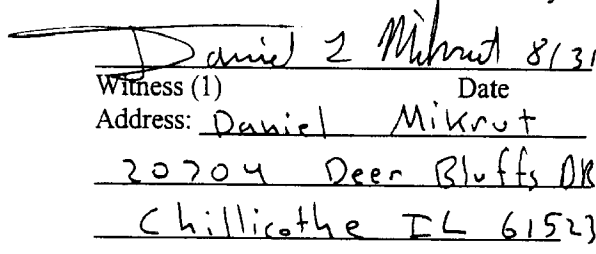 Daniel L Mikrut 8/31
Witness (1) Date
Address: Daniel Mikrut
20704 Deer Bluffs DR
Chillicothe IL 61523